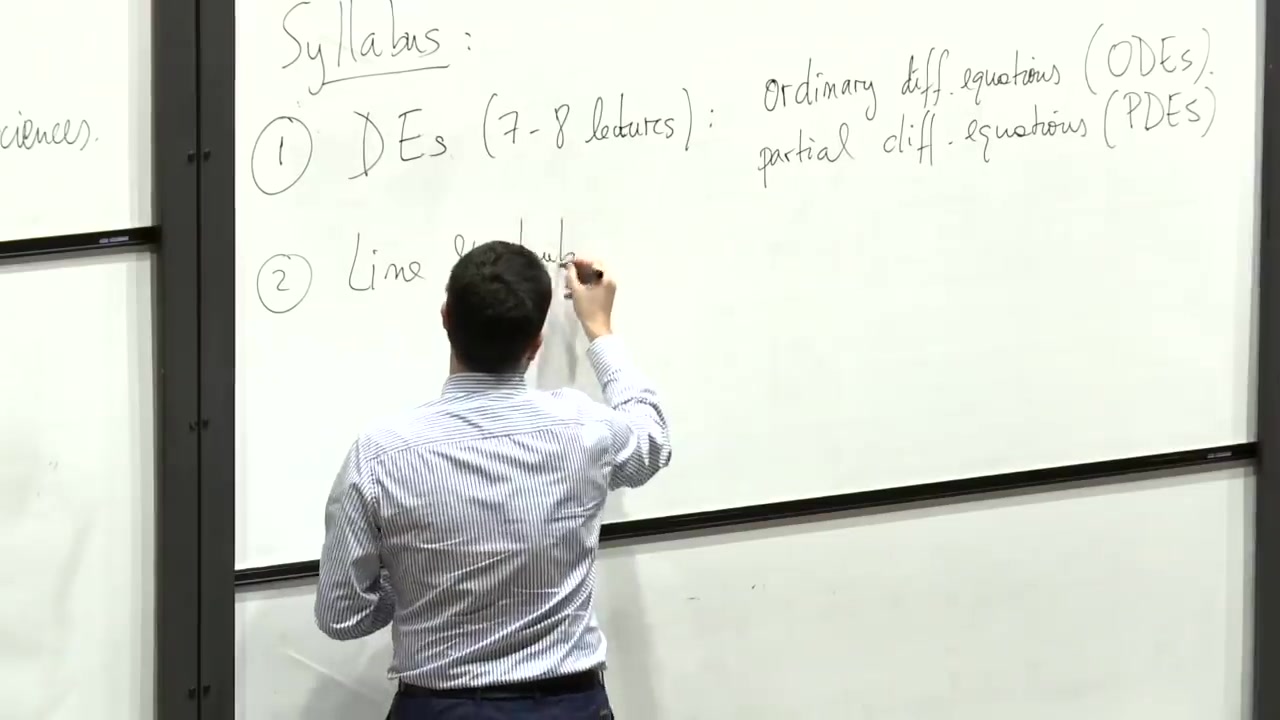 Syllabus:
ciences.
① DEs (7-8 lectures): ordinary diff. equations (ODEs).
partial diff. equations (PDEs)
② Line